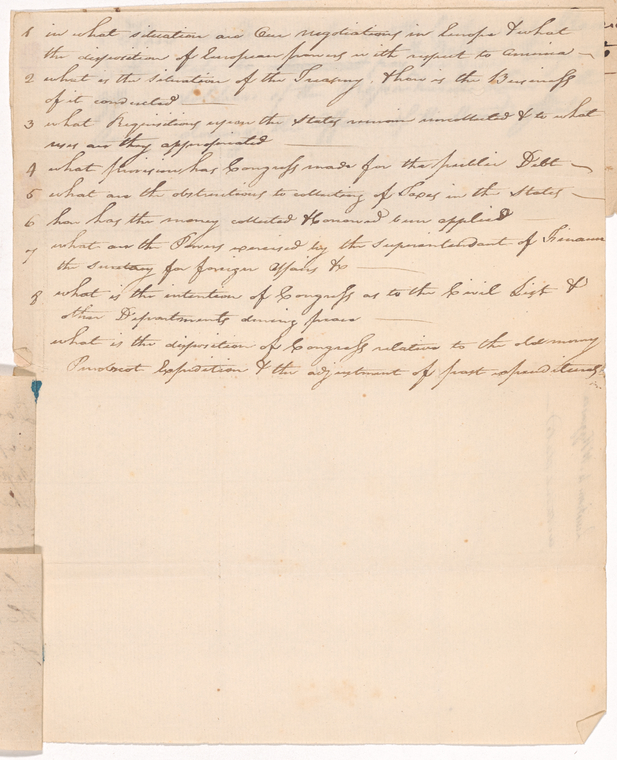 1 in what situation are Our negotiations in Europe & what
the disposition of European powers with respect to America
2 what is the situation of the Treasury. & how is the Business
of it conducted
3 what Requisitions upon the States remain uncollected & to what
uses are they appropriated
4 what provision has Congress made for the public Debt
5 what are the obstructions to collecting of Taxes in the States
6 how has the money collected & borrowed been applied
7 what are the Powers exercised by the Superintendant of Finance
the Secretary for foreign Affairs &c
8 what is the intention of Congress as to the Civil List &
other Departments during peace
what is the disposition of Congress relative to the old money
Penobscot Expedition & the adjustment of past expenditures